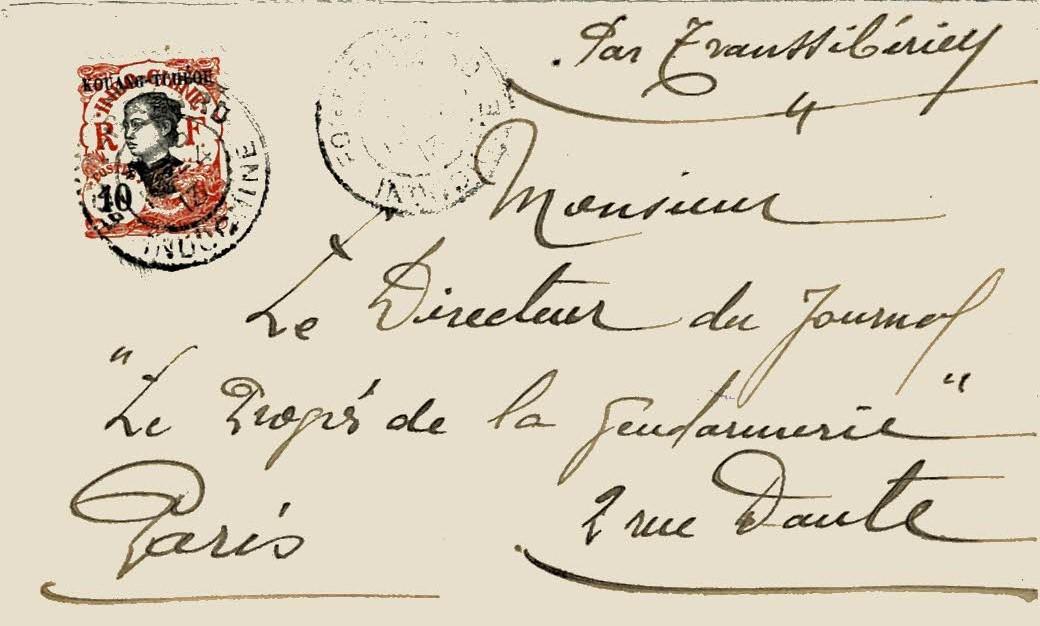 Par Transsibérien
KOUANG-TCHÉOU
INDO-CHINE
R F
POSTES
10
INDOCHINE
Monsieur
Le Directeur du Journal
"Le Progrès de la Gendarmerie"
Paris
2 rue Dante